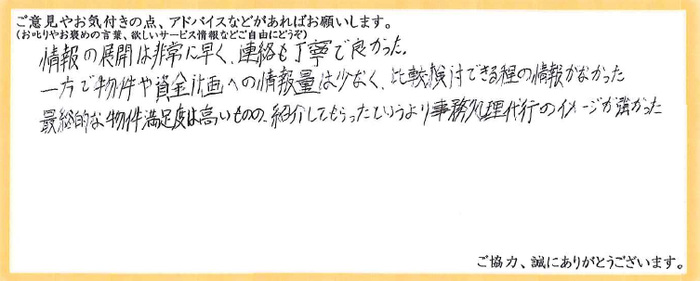 ご意見やお気付きの点、アドバイスなどがあればお願いします。
(お叱りやお褒めの言葉、欲しいサービス情報などご自由にどうぞ)
情報の展開は非常に早く、連絡も丁寧で良かった。
一方で物件や資金計画への情報量は少なく、比較検討できる程の情報がなかった
最終的な物件満足度は高いものの、紹介してもらったというより事務処理代行のイメージが強かった
ご協力、誠にありがとうございます。